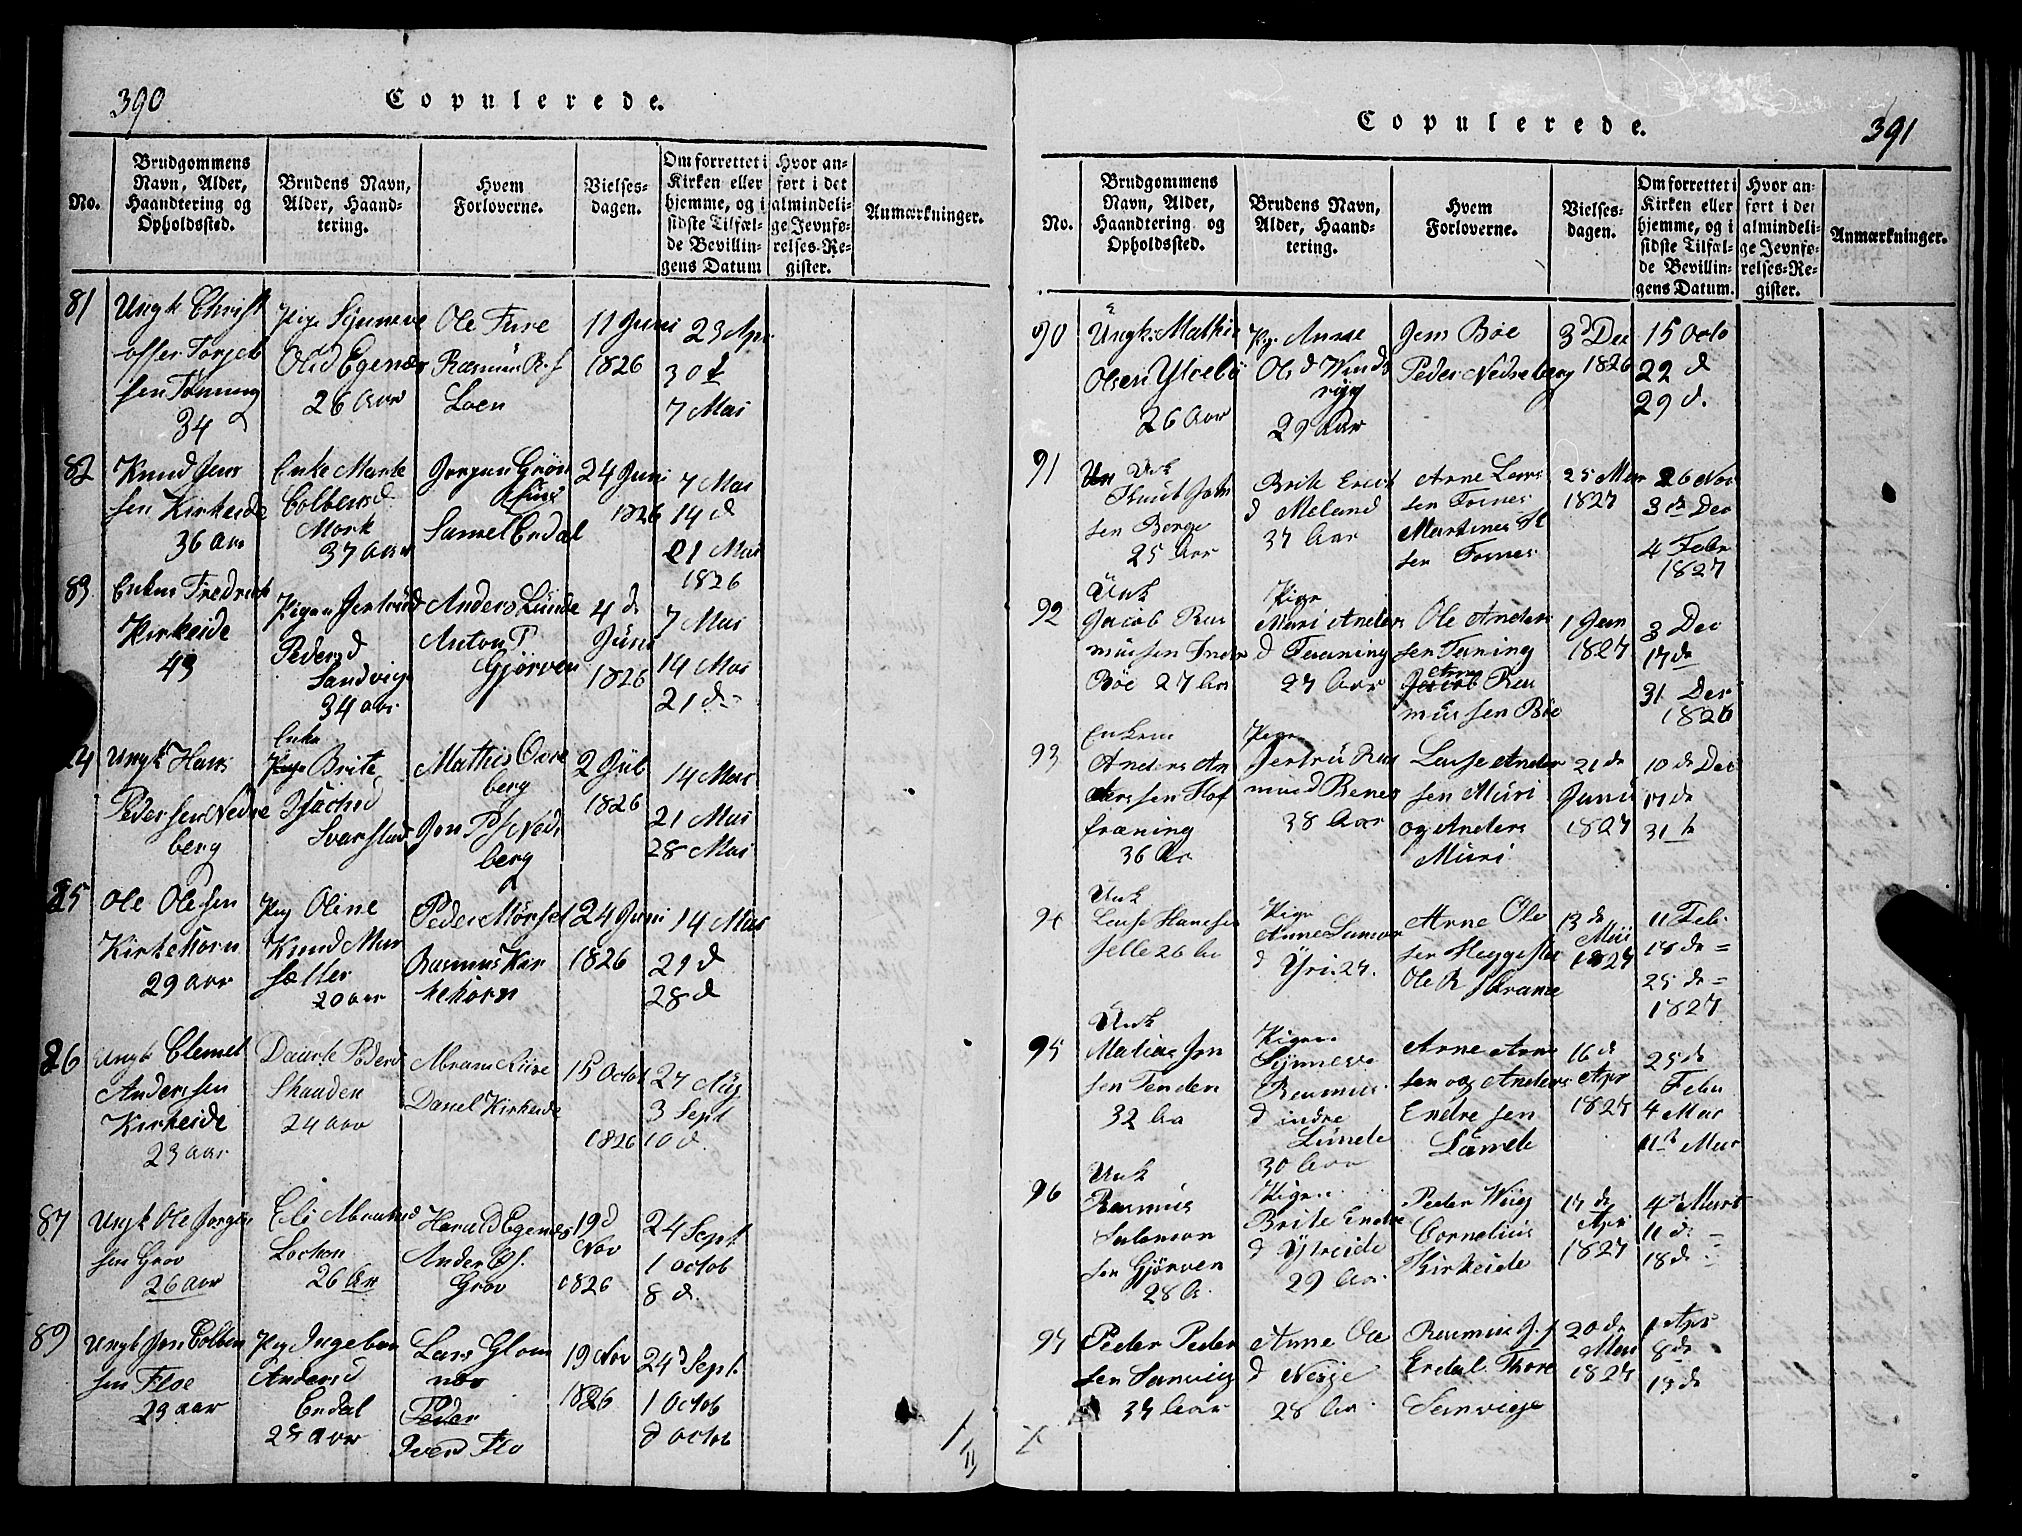 390
Copulerede.
No.
Brudgommens
Navn, Alder,
Haandtering og
Opholdssted.
Brudens Navn,
Alder, Haand-
tering.
Hvem
Forloverne.
Vielses-
dagen.
Om forrettet i
Kirken eller
hjemme, og i
sidste Tilfæl-
de Bevillin-
gens Datum
Hvor an-
ført i det
almindeli-
ge Jevnfø-
relses-Re-
gister.
Anmærkninger.
81
Ungk Christ
offer Torjeb
sen Tønning
34
Pige
Old Egenæs
26 Aar
Ole Fure
Rasmus R. s
Loen
11 Juni
1826
23 Apr
30 d
7 Mai
82
Knud Jens
sen Kirkeide
36 aar
Enke Marte
Colbensd
Mork
37 Aar
Jørgen Grön
Samel Erdal
24 Juni
1826
7 Mai
14 d
21 Mai
1826
83
Enkm Fredrick
Kirkeide
43
Pigen Jertrud
Pedersd
Sandvig
34 aar
Anders Lunde
Anton P
Gjörven
4 de
Juni
1826
7 Mai
14 Mai
21 d
Ungk Hans
Pedersen Nedre
berg
Enke
Brite
Svarstad
Mathis Ovre
berg
Jon P s Nedr
berg
2 Jul
1826
14 Mai
21 Mai
28 Mai
85
Ole Olesen
Kirkehorn
29 aar
Pig Oline
Knud Mur
sætter
20 aar
Peder Mörset
Rasmus Kir
kehorn
24 Juni
1826
14 Mai
21 d
28 d
86
Ungk Clemet
Anderssen
Kirkeide
23 aar
Daarte Pedersd
Skaaden
24 aar
Abram Riise
Daniel Kirkeide
15 Octob
1826
27 Aug
3 Sept
10 d.
87
Ungk Ole Jørgen
sen Grov
26 aar
Eli Abrahmsd
Lochen
26 Aar
Harald Egenæs
Anders O s.
Grov
19 d
Nov
1826
24 Sept
1 octob
8 d.
89
Ungk Jon Colben
sen Floe
29 aar
Pig Ingebor
Andersd
Erdal
Lars Glom
nes
Peder
Iversd Flo
19 Nov
1826
24 d Sept
1 Octob
8 octob
Copulerede.
391
No.
Brudgommens
Navn, Alder,
Haandtering og
Opholdssted.
Brudens Navn,
Alder, Haand-
tering.
Hvem
Forloverne.
Vielses-
dagen.
Om forrettet i
Kirken eller
hjemme, og i
sidste Tilfæl-
de Bevillin-
gens Datum.
Hvor an-
ført i det
almindeli-
ge Jevnfø-
relses-Re-
gister.
Anmærkninger.
90
Ungk. Mathis
Olsen Ytrebö
26 Aar
Pig. Anne
Ols d Vinds
ryg
29 Aar
Jens Böe
Peder Nedreberg
3 d Dec
1826
15 Octo
22 d
29 d.
91
Unk
Knut Jon
sen Berge
25 Aar
Brite Erics
d Meland
37 Aar
Arne Lars
sen Fosnes
Martines
sen Fosnes
25 Mar
1827
26 Nov
3 de Dec
4 Febr
1827
92
Unk
Jacob Ras
mussen Indre
Böe 27 Aar
Pige
Mari Anders
d Tenning
27 Aar
Ole Anders
sen Tenning
Arne
Jacob Ras
mussen Böe
1 Jan
1827
3 Dec
17 de
31 Dec
1826
93
Enkem
Anders An
derssen Hof
fræning
36 Aar
Pige
Jertru Ras
musd Renes
38 Aar
Lasse Ander
sen Muri
og Anders
Muri
21 de
Janu
1827
10 de Dec
17 de
31 te
94
Unk
Lasse Hansen
Selle 26 Aar
Pige
Anne
d Yri. 27.
Arne Ole
sen Heggestad
Ole R Skrame
13 de
Mai
1827
11 Feb
18 de =
25 de =
1827
95
Unk
Matias Jon
sen Tenden
32 Aar
Pigen
Synneve
Rasmus
d indre
Lunde
30 Aar
Arne Arne
sen og Anders
Endresen
Lunde
16 de
Apr
1827
25 de
Febr
4 Mar
11 te Mar
96
Unk
Rasmus
Salomon
sen Gjörven
28 A.
Pigen
Brite Endre
d Ytreide
29 Aar
Peder Viig
Cornelius
Kirkeide
17 de
Apr
1827
4 de Mart
11 d:
18 d:
97
Peder Peder
sen Sanvig
37 Aar
Anne Ole
d Nesje
28 Aar
Rasmus J. s
Erdal Thore
Sanvige
20 de
Mai
1827
1 Apr
8 de
15 de